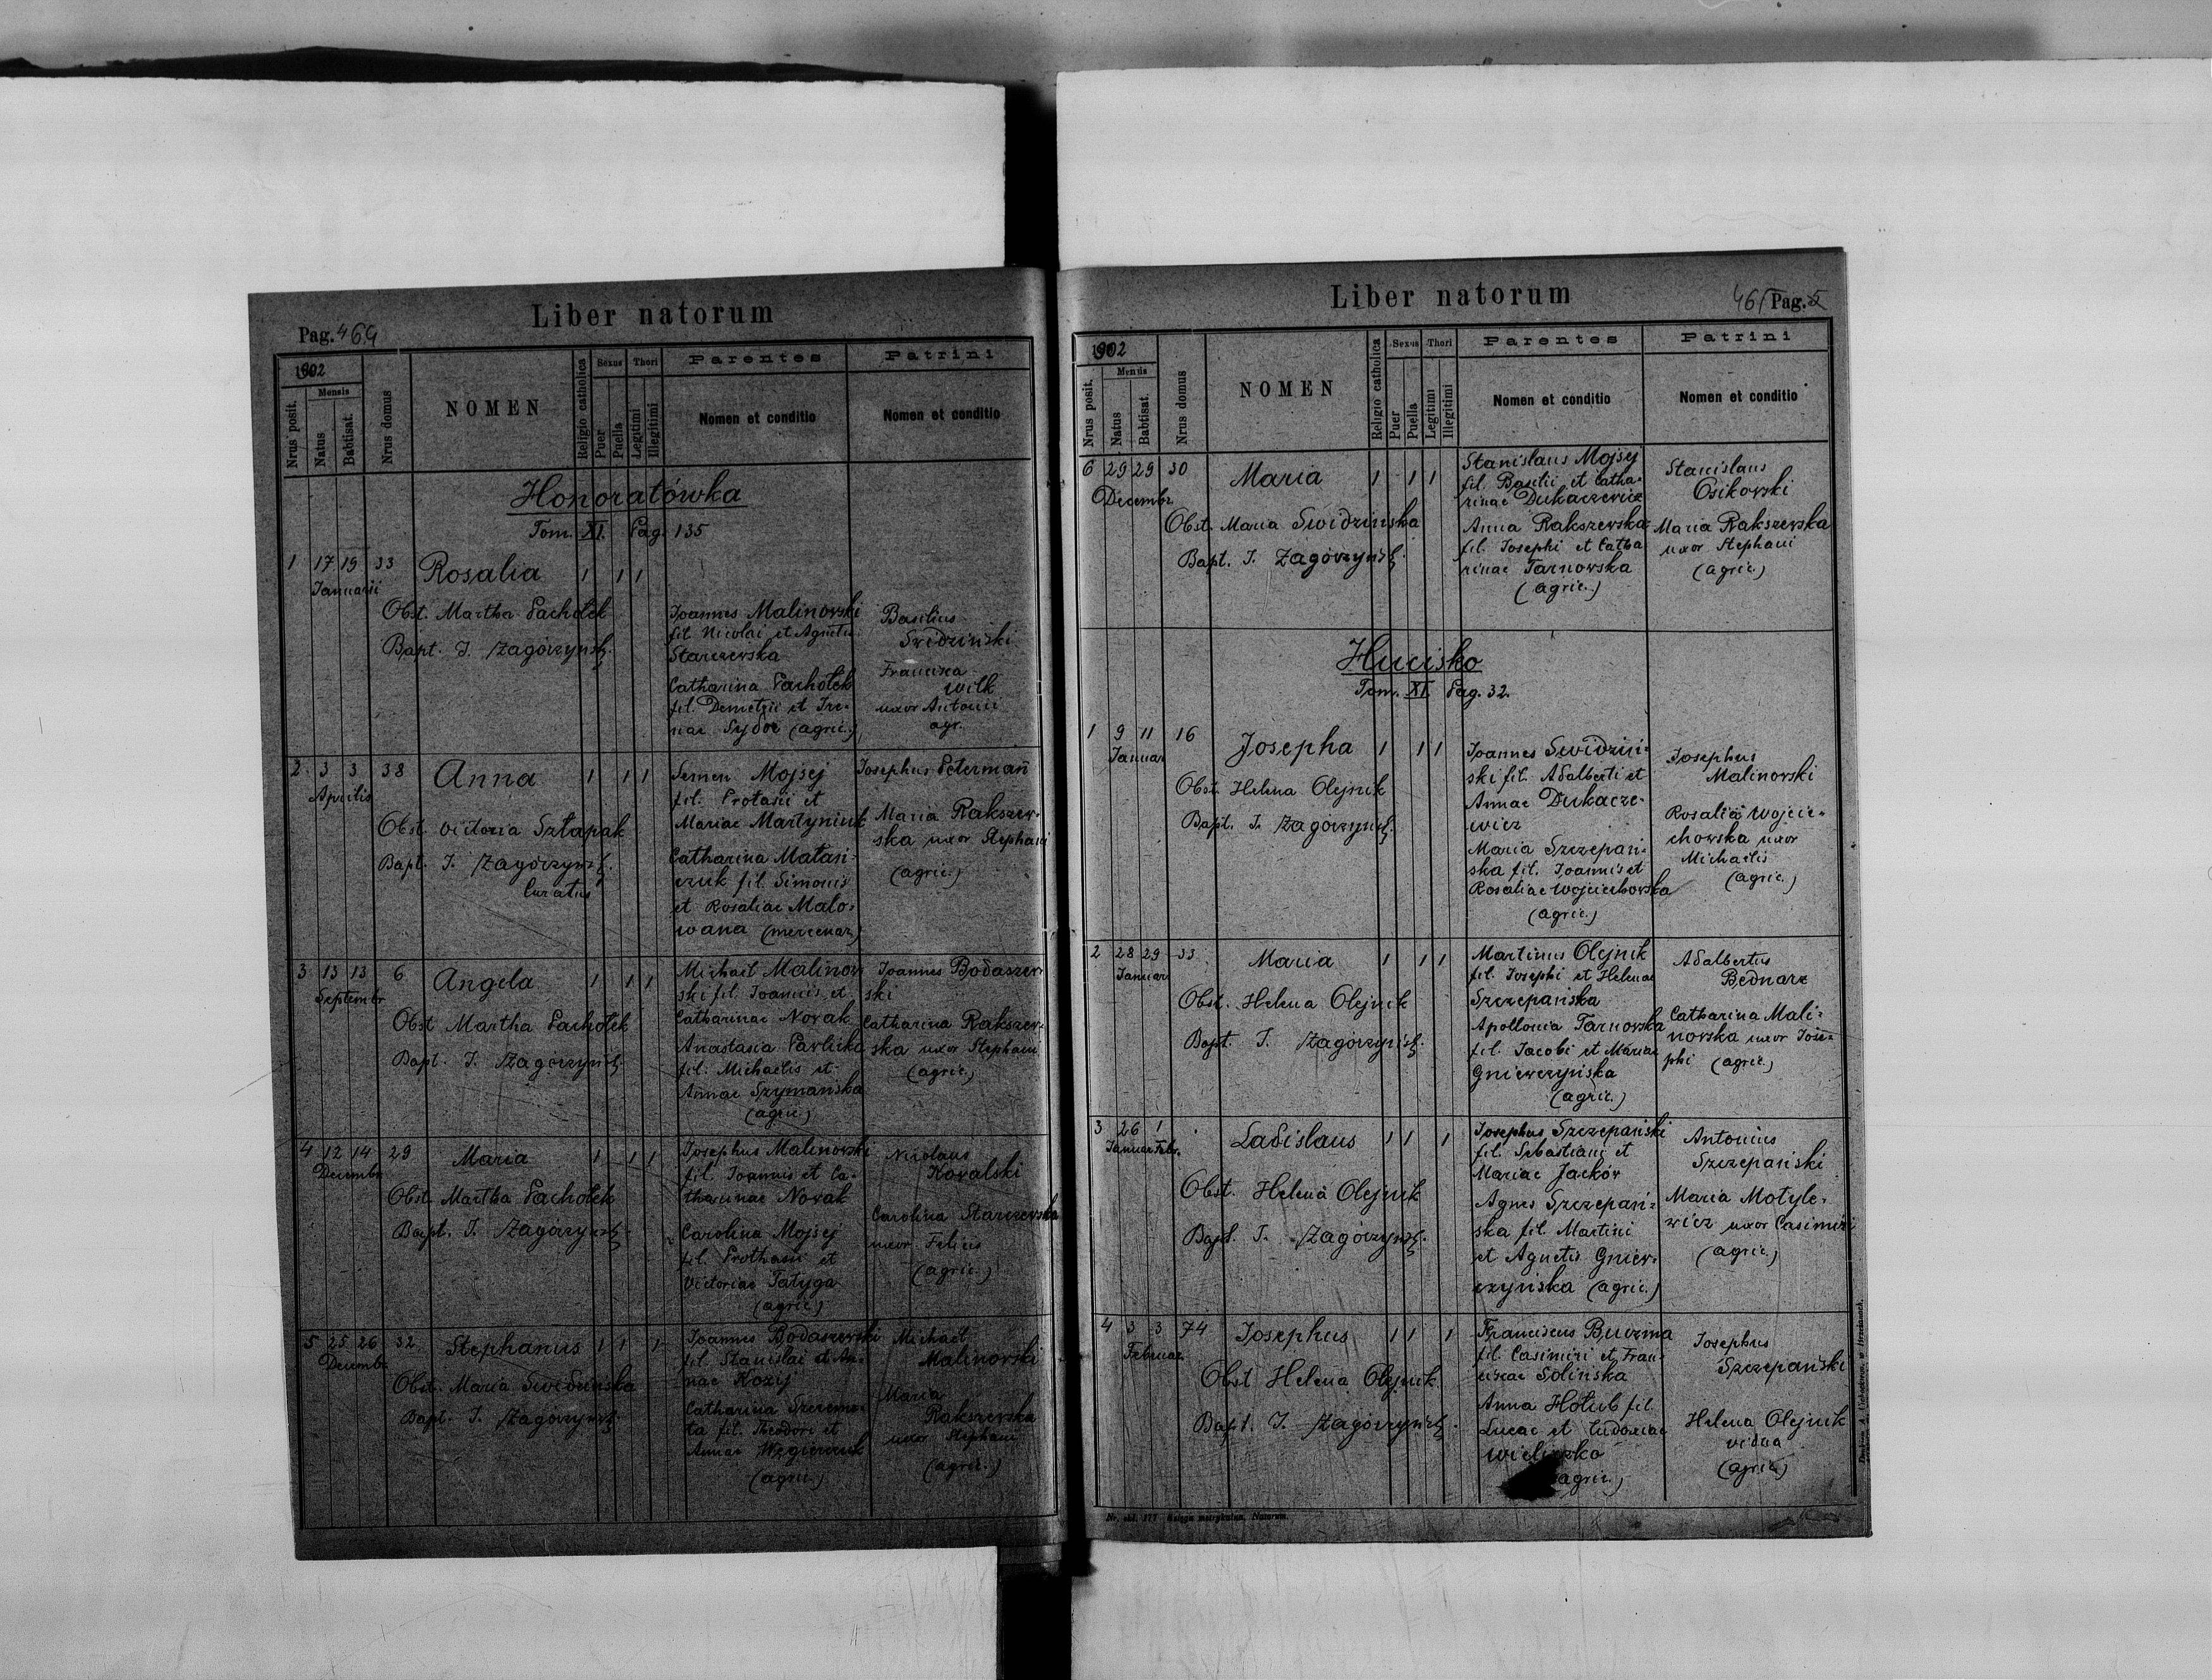 Liber natorum
Pag. 464
1902
Nrus posit.
Mensis
Natus
Babtisat.
Nrus domus
NOMEN
Religio catholica
Sexus
Puer
Puella
Thori
Legitimi
Illegitimi
Parentes
Nomen et conditio
Patrini
Nomen et conditio
Honoratówka
Tom. XI. Pag. 135
1 17 19 33 Rosalia 1 1 1
Januarii
Obst. Martha Pachołek
Bapt. J. Zagórzyński
Joannes Malinovski
fil. Nicolai et Agnetis
Starczewska
Catharina Pachołek
fil. Demetrii et Ire-
nae Sydor (agric.)
Basilius
Svidziński
Francisca
Wilk
uxor Antonii
agr.
2 3 3 38 Anna 1 1 1
Aprilis
Obst. Victoria Sztapak
Bapt. J. Zagórzyński
Curatus
Semen Mojsej
fil. Protasii et
Mariae Martyniuk
Catharina Matasi-
czuk fil. Simonis
et Rosaliae Malo-
wana (mercenar.)
Josephus Peterman
Maria Rakszew-
ska uxor Stephani
(agric.)
3 13 13 6 Angela 1 1 1
Septembr
Obst Martha Pachołek
Bapt. J. Zagórzyński
Michael Malinow-
ski fil. Joannis et
Catharinae Novak
Anastasia Pavlicki
fil. Michaelis et
Annae Szymańska
(agric.)
Joannes Bodaszew-
ski
Catharina Rakszew-
ska uxor Stephani
(agric.)
4 12 14 29 Maria 1 1 1
Decembr
Obst. Martha Pachołek
Bapt. J. Zagórzyński
Josephus Malinovski
fil. Joannis et Ca-
tharinae Novak
Carolina Mojsej
fil. Prothasii et
Victoriae Tatyga
(agric.)
Nicolaus
Kovalski
Carolina Starczevska
uxor Felicis
(agric.)
5 25 26 32 Stephanus 1 1 1
Decembr
Obst. Maria Svidzinska
Bapt. J. Zagórzyński
Joannes Bodaszevski
fil. Stanislai et An-
nae Kozij
Catharina Szereme-
ta fil. Theodori et
Annae Węgierczuk
(agric.)
Michael
Malinovski
Maria
Rakszevska
uxor Stephani
(agric.)
Liber natorum
465 Pag. 5
1902
Nrus posit.
Mensis
Natus
Babtisat.
Nrus domus
NOMEN
Religio catholica
Sexus
Puer
Puella
Thori
Legitimi
Illegitimi
Parentes
Nomen et conditio
Patrini
Nomen et conditio
6 29 29 30 Maria 1 1 1
Decembr
Obst. Maria Svidzinska
Bapt. J. Zagórzyński
Stanislaus Mojsej
fil. Basilii et Catha-
rinae Dukaczewicz
Anna Rakszevska
fil. Josephi et Catha
rinae Tarnowska
(agric.)
Stanislaus
Osikovski
Maria Rakszevska
uxor Stephani
(agric.)
Hucisko
Tom. XI. Pag. 32.
1 9 11 16 Josepha 1 1 1
Januar
Obst. Helena Olejnik
Bapt. J. Zagórzyński
Joannes Svidziń-
ski fil. Adalberti et
Annae Dukacze-
wicz
Maria Szczepań-
ska fil. Joannis et
Rosaliae Wojciechowska
(agric.)
Josephus
Malinovski
Rosalia Wojcie-
chowska uxor
Michaelis
(agric.)
2 28 29 33 Maria 1 1 1
Januar
Obst. Helena Olejnik
Bapt. J. Zagórzyński
Martinus Olejnik
fil. Josephi et Helenae
Szczepańska
Apollonia Tarnovska
fil. Jacobi et Mariae
Gniewczyńska
(agric.)
Adalbertus
Bednarz
Catharina Mali-
novska uxor Jose-
phi (agric.)
3 26 1 Ladislaus 1 1 1
Januar Febr.
Obst. Helena Olejnik
Bapt. J. Zagórzyński
Josephus Szczepański
fil. Sebastiani et
Mariae Jacków
Agnes Szczepań-
ska fil. Martini
et Agnetis Gniew-
czyńska (agric.)
Antonius
Szczepański
Maria Motyle-
wicz uxor Casimiri
(agric.)
4 3 3 74 Josephus 1 1 1
Februar
Obst Helena Olejnik
Bapt. J. Zagórzyński
Franciscus Buczma
fil. Casimiri et Fran-
ciscae Solińska
Anna Hołub fil.
Lucae et Eudoxiae
agric.)
Josephus
Szczepański
Helena Olejnik
vidua
(agric.)
Nr. skł. 177 Księga metrykalna. Natorum.